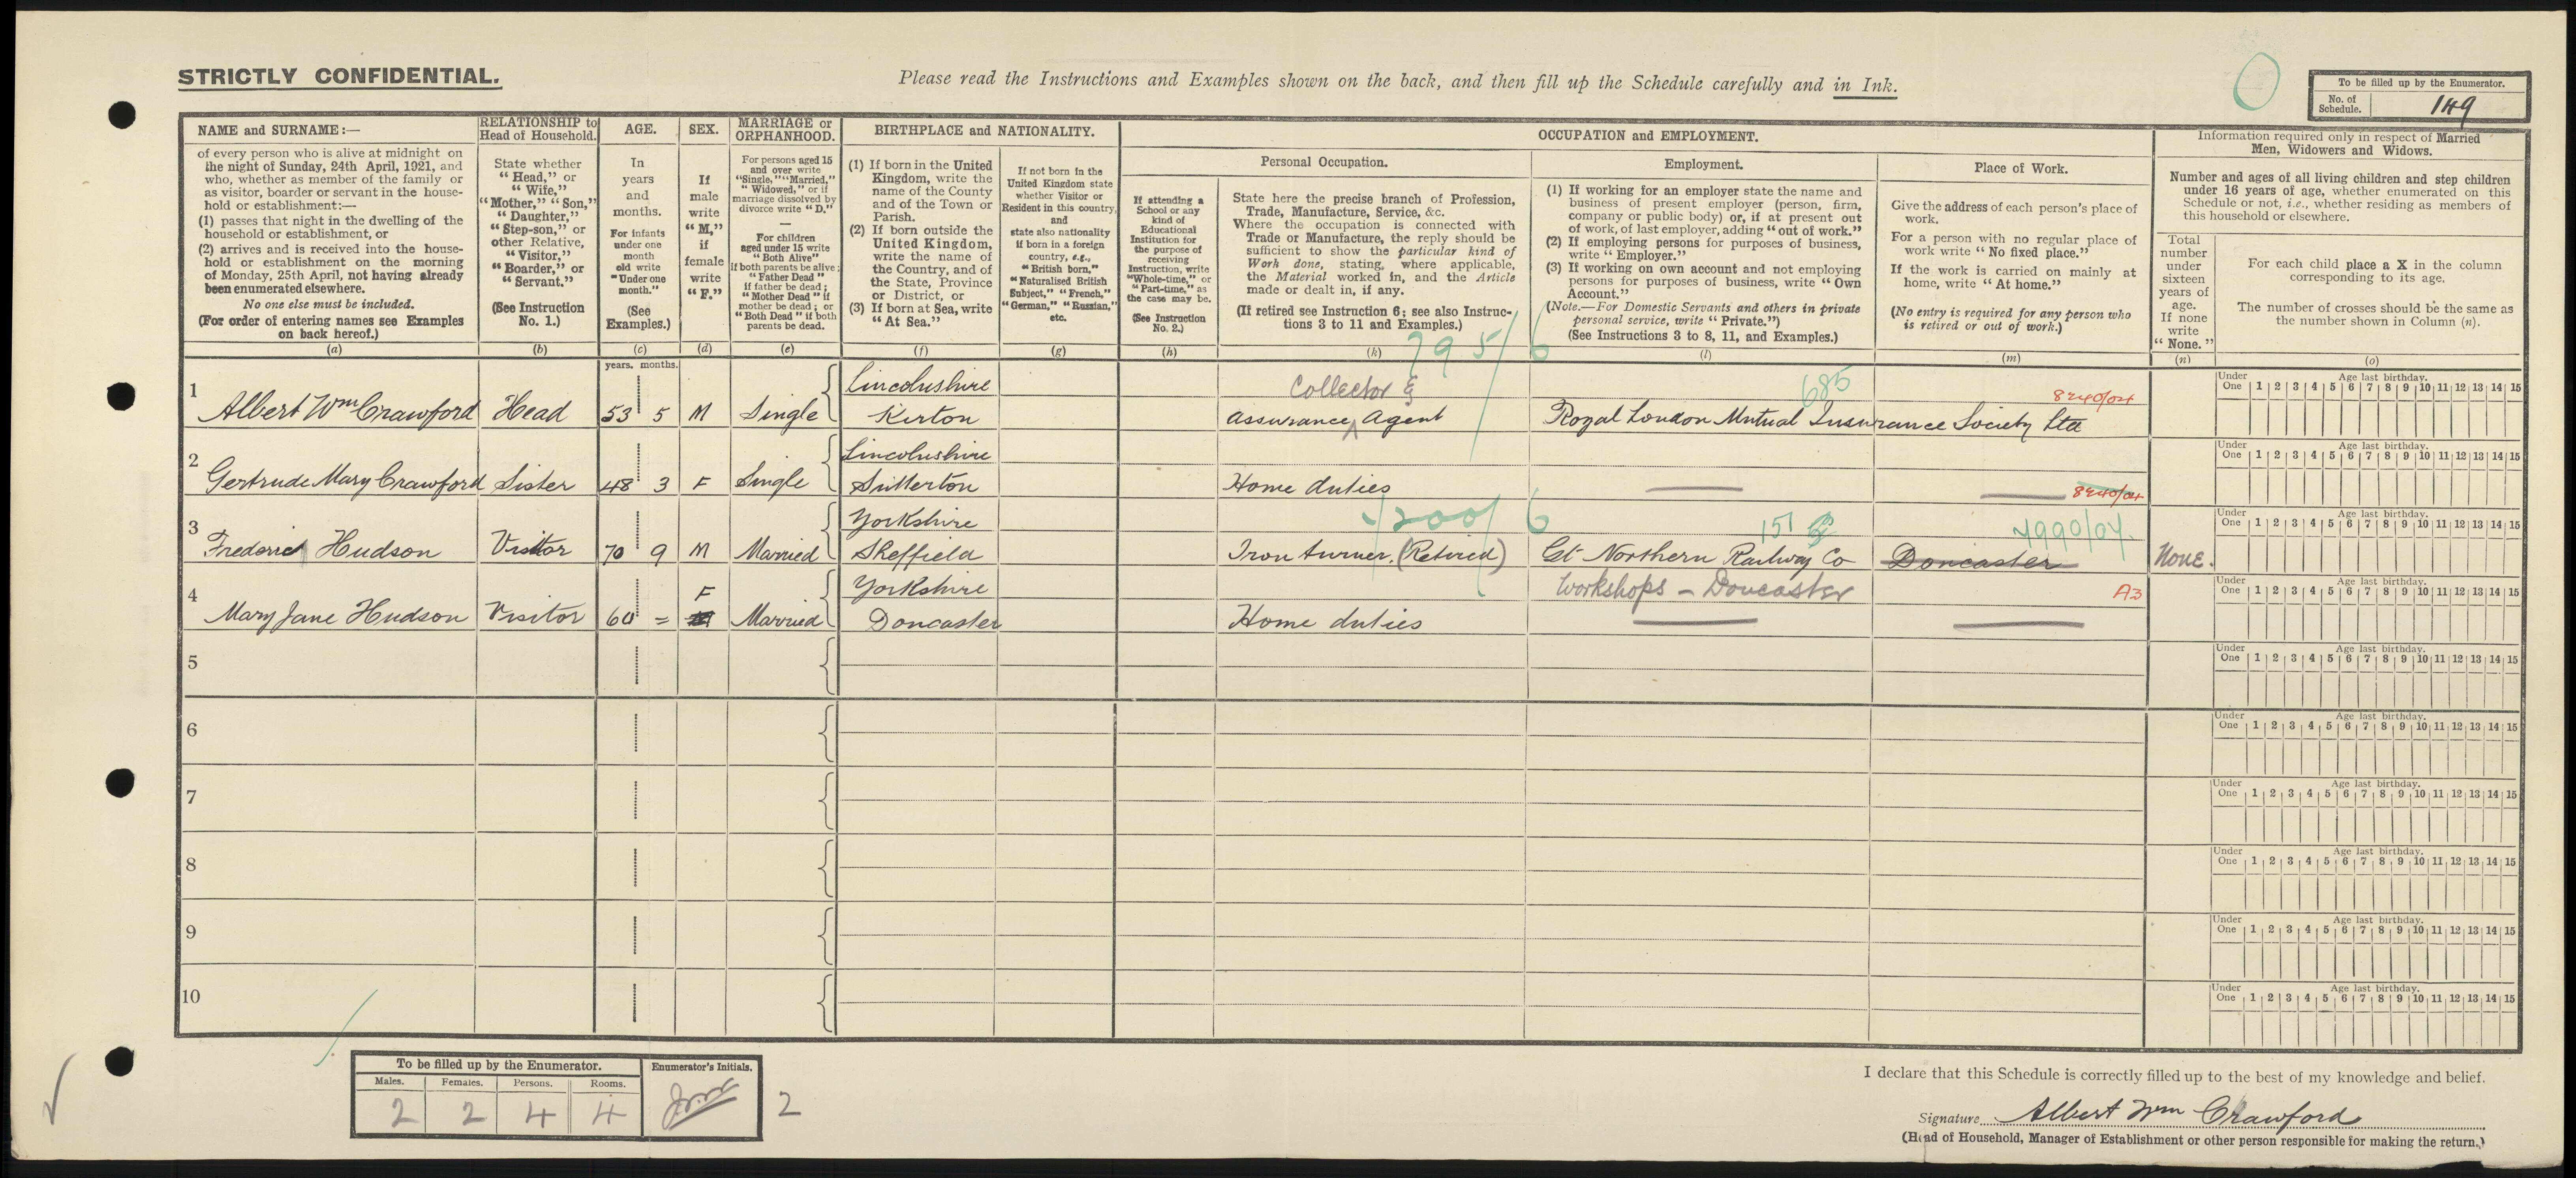 STRICTLY CONFIDENTIAL.
Please read the Instructions and Examples shown on the back, and then fill up the Schedule carefully and in Ink.
To be filled up by the Enumerator.
No. of Schedule. 149
NAME and SURNAME:—
of every person who is alive at midnight on
the night of Sunday, 24th April, 1921, and
who, whether as member of the family or
as visitor, boarder or servant in the house-
hold or establishment:—
(1) passes that night in the dwelling of the
household or establishment, or
(2) arrives and is received into the house-
hold or establishment on the morning
of Monday, 25th April, not having already
been enumerated elsewhere.
No one else must be included.
(For order of entering names see Examples
on back hereof.)
(a)
RELATIONSHIP to
Head of Household.
State whether
"Head," or
"Wife,"
"Mother," "Son,"
"Daughter,"
"Step-son," or
other Relative,
"Visitor,"
"Boarder," or
"Servant."
(See Instruction
No. 1.)
(b)
AGE.
In
years
and
months.
For infants
under one
month
old write
"Under one
month."
(See
Examples.)
(c)
SEX.
If
male
write
"M,"
if
female
write
"F."
(d)
MARRIAGE or
ORPHANHOOD.
For persons aged 15
and over write
"Single," "Married,"
"Widowed," or if
marriage dissolved by
divorce write "D."
—
For children
aged under 15 write
"Both Alive"
if both parents be alive;
"Father Dead"
if father be dead;
"Mother Dead" if
mother be dead; or
"Both Dead" if both
parents be dead.
(e)
BIRTHPLACE and NATIONALITY.
(1) If born in the United
Kingdom, write the
name of the County
and of the Town or
Parish.
(2) If born outside the
United Kingdom,
write the name of
the Country, and of
the State, Province
or District, or
(3) If born at Sea, write
"At Sea."
(f)
If not born in the
United Kingdom state
whether Visitor or
Resident in this country,
and
state also nationality
if born in a foreign
country, e.g.,
"British born,"
"Naturalised British
Subject," "French,"
"German," "Russian,"
etc.
(g)
OCCUPATION and EMPLOYMENT.
If attending a
School or any
kind of
Educational
Institution for
the purpose of
receiving
Instruction, write
"Whole-time," or
"Part-time," as
the case may be.
(See Instruction
No. 2.)
(h)
Personal Occupation.
State here the precise branch of Profession,
Trade, Manufacture, Service, &c.
Where the occupation is connected with
Trade or Manufacture, the reply should be
sufficient to show the particular kind of
Work done, stating, where applicable,
the Material worked in, and the Article
made or dealt in, if any.
(If retired see Instruction 6; see also Instruc-
tions 3 to 11 and Examples.)
(k)
Employment.
(1) If working for an employer state the name and
business of present employer (person, firm,
company or public body) or, if at present out
of work, of last employer, adding "out of work."
(2) If employing persons for purposes of business,
write "Employer."
(3) If working on own account and not employing
persons for purposes of business, write "Own
Account."
(Note.—For Domestic Servants and others in private
personal service, write "Private.")
(See Instructions 3 to 8, 11, and Examples.)
(l)
Place of Work.
Give the address of each person's place of
work.
For a person with no regular place of
work write "No fixed place."
If the work is carried on mainly at
home, write "At home."
(No entry is required for any person who
is retired or out of work.)
(m)
Information required only in respect of Married
Men, Widowers and Widows.
Number and ages of all living children and step children
under 16 years of age, whether enumerated on this
Schedule or not, i.e., whether residing as members of
this household or elsewhere.
Total
number
under
sixteen
years of
age.
If none
write
"None."
(n)
For each child place a X in the column
corresponding to its age.
The number of crosses should be the same as
the number shown in Column (n).
(o)
years. months.
795/6
1 Albert Wm Crawford Head 53 5 M Single Lincolnshire
Kirton
Collector &
assurance Agent
685
Royal London Mutual Insurance Society Ltd
8240/04
Under One Age last birthday. 1 2 3 4 5 6 7 8 9 10 11 12 13 14 15
2 Gertrude Mary Crawford Sister 48 3 F Single Lincolnshire
Sutterton
Home duties
8240/04
Under One Age last birthday. 1 2 3 4 5 6 7 8 9 10 11 12 13 14 15
3 Frederick Hudson Visitor 70 9 M Married Yorkshire
Sheffield
200/6
Iron turner. (Retired)
151
Gt Northern Railway Co
Workshops - Doncaster
4990/04.
Doncaster
None.
Under One Age last birthday. 1 2 3 4 5 6 7 8 9 10 11 12 13 14 15
4 Mary Jane Hudson Visitor 60 = F Married Yorkshire
Doncaster
Home duties
A3
Under One Age last birthday. 1 2 3 4 5 6 7 8 9 10 11 12 13 14 15
5
Under One Age last birthday. 1 2 3 4 5 6 7 8 9 10 11 12 13 14 15
6
Under One Age last birthday. 1 2 3 4 5 6 7 8 9 10 11 12 13 14 15
7
Under One Age last birthday. 1 2 3 4 5 6 7 8 9 10 11 12 13 14 15
8
Under One Age last birthday. 1 2 3 4 5 6 7 8 9 10 11 12 13 14 15
9
Under One Age last birthday. 1 2 3 4 5 6 7 8 9 10 11 12 13 14 15
10
Under One Age last birthday. 1 2 3 4 5 6 7 8 9 10 11 12 13 14 15
To be filled up by the Enumerator.
Males. Females. Persons. Rooms.
2 2 4 4
Enumerator's Initials.
2
I declare that this Schedule is correctly filled up to the best of my knowledge and belief.
Signature Albert Wm Crawford
(Head of Household, Manager of Establishment or other person responsible for making the return.)